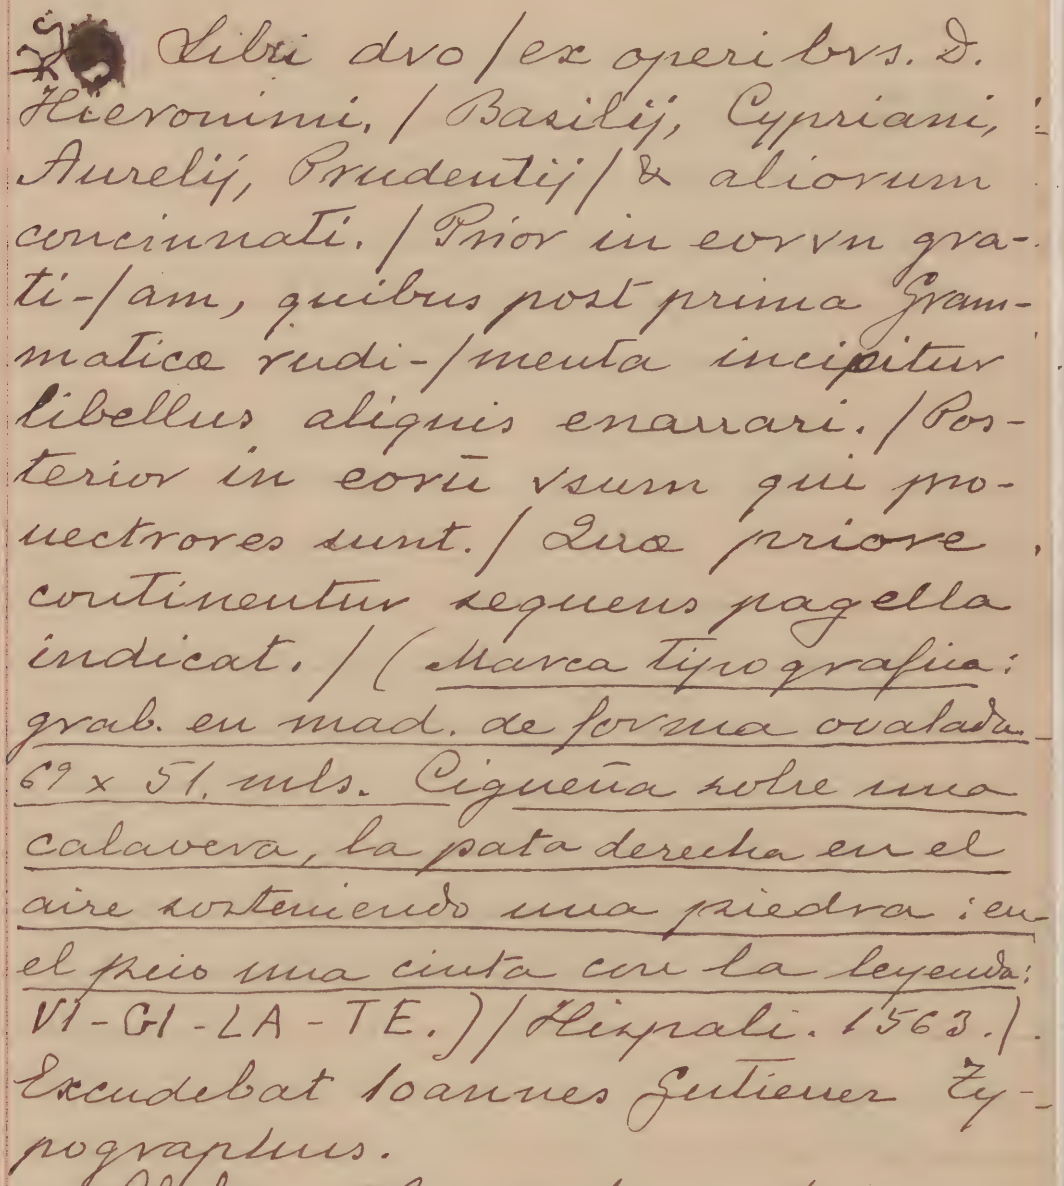 Libri dvo / ex operibvs. D.
Hieronimi. / Basilij, Cypriani,
Aurelij, Prudentij / & aliorum
concinnati. / Prior in eorvn gra-
ti- / am, quibus post prima Gram-
maticæ rudi- / menta incipitur
libellus aliquis enarrari. / Pos-
terior in eorū vsum qui pro-
uectrores sunt. / Quæ priore
continentur sequens pagella
indicat. / (Marca tipografica:
grab. en mad. de forma ovalada
69 x 51. mls. Cigueña sobre una
calavera, la pata derecha en el
aire sosteniendo una piedra: en
el pcio una cinta con la leyenda:
VI - GI - LA - TE.) / Hispali. 1563. /.
Excudebat Ioannes Gutierrer Ty-
pographus.